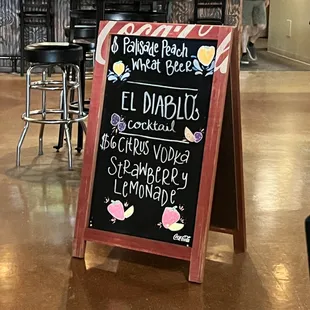 Coca-Cola
$ Palisade Peach
Wheat Beer
EL DIABLO
cocktail
$6 Citrus Vodka
Strawberry
Lemonade
Coca-Cola